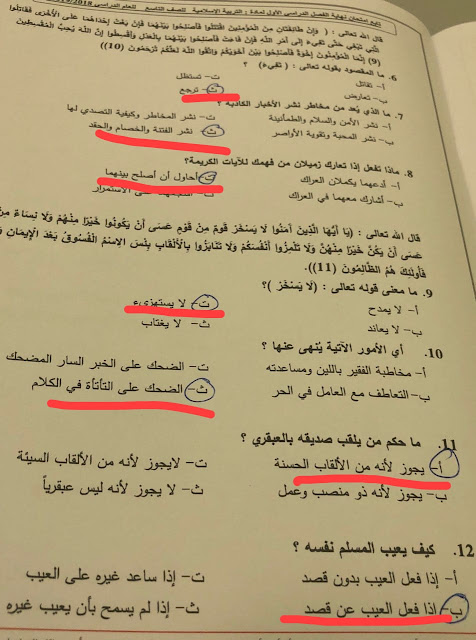 تابع امتحان نهاية الفصل الدراسي الأول لمادة: التربية الإسلامية للصف التاسع للعام الدراسي 2019/2018
قال الله تعالى : (وَإِنْ طَائِفَتَانِ مِنَ الْمُؤْمِنِينَ اقْتَتَلُوا فَأَصْلِحُوا بَيْنَهُمَا فَإِنْ بَغَتْ إِحْدَاهُمَا عَلَى الْأُخْرَى فَقَاتِلُوا
الَّتِي تَبْغِي حَتَّى تَفِيءَ إِلَى أَمْرِ اللَّهِ فَإِنْ فَاءَتْ فَأَصْلِحُوا بَيْنَهُمَا بِالْعَدْلِ وَأَقْسِطُوا إِنَّ اللَّهَ يُحِبُّ الْمُقْسِطِينَ
(9) إِنَّمَا الْمُؤْمِنُونَ إِخْوَةٌ فَأَصْلِحُوا بَيْنَ أَخَوَيْكُمْ وَاتَّقُوا اللَّهَ لَعَلَّكُمْ تُرْحَمُونَ (10))
6. ما المقصود بقوله تعالى : ( تفيء) ؟
أ- تقاتل
ت- تستظل
ب- تعارض
ث- ترجع
7. ما الذي يُعد من مخاطر نشر الأخبار الكاذبة ؟
أ- نشر الأمن والسلام والطمأنينة
ت- نشر المخاطر وكيفية التصدي لها
ب- نشر المحبة وتقوية الأواصر
ث- نشر الفتنة والخصام والحقد
8. ماذا تفعل إذا تعارك زميلان من فهمك للآيات الكريمة؟
أ- أدعهما يكملان العراك
ت- أحاول أن أصلح بينهما
ب- أشارك معهما في العراك
على الاستمرار
قال الله تعالى : (يَا أَيُّهَا الَّذِينَ آمَنُوا لَا يَسْخَرْ قَومٌ مِنْ قَوْمٍ عَسَى أَنْ يَكُونُوا خَيْرًا مِنْهُمْ وَلَا نِسَاءٌ مِنْ
عَسَى أَنْ يَكُنَّ خَيْرًا مِنْهُنَّ وَلَا تَلْمِزُوا أَنْفُسَكُمْ وَلَا تَنَابَزُوا بِالْأَلْقَابِ بِئْسَ الِاسْمُ الْفُسُوقُ بَعْدَ الْإِيمَانِ وَ
فَأُولَئِكَ هُمُ الظَّالِمُونَ (11)).
9. ما معنى قوله تعالى : (لَا يَسْخَرْ )؟
أ- لا يمدح
ت- لا يستهزيء
ب- لا يعاند
ث- لا يغتاب
10. أي الأمور الآتية يُنهى عنها ؟
أ- مخاطبة الفقير باللين ومساعدته
ت- الضحك على الخبر السار المضحك
ب- التعاطف مع العامل في الحر
ث- الضحك على التأتأة في الكلام
11. ما حكم من يلقب صديقه بالعبقري ؟
أ- يجوز لأنه من الألقاب الحسنة
ت- لايجوز لأنه من الألقاب السيئة
ب- يجوز لأنه ذو منصب وعمل
ث- لا يجوز لأنه ليس عبقرياً
12. كيف يعيب المسلم نفسه ؟
أ- إذا فعل العيب بدون قصد
ت- إذا ساعد غيره على العيب
ب- إذا فعل العيب عن قصد
ث- إذا لم يسمح بأن يعيب غيره